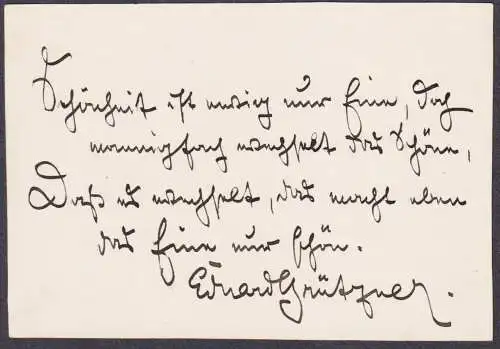 Schönheit ist ewig nur Eine, doch
mannigfach wechselt das Schöne,
Daß es wechselt, das macht eben
das Eine nur schön.
Eduard Grützner.